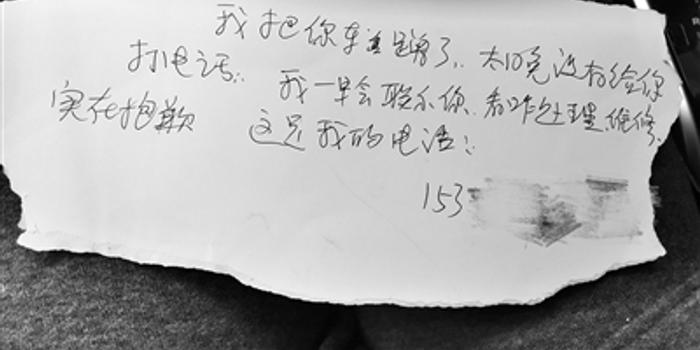 我把你车蹭了.太晚没有给你
打电话. 我一早会联系你.看咋处理维修.
实在抱歉 这是我的电话:
153